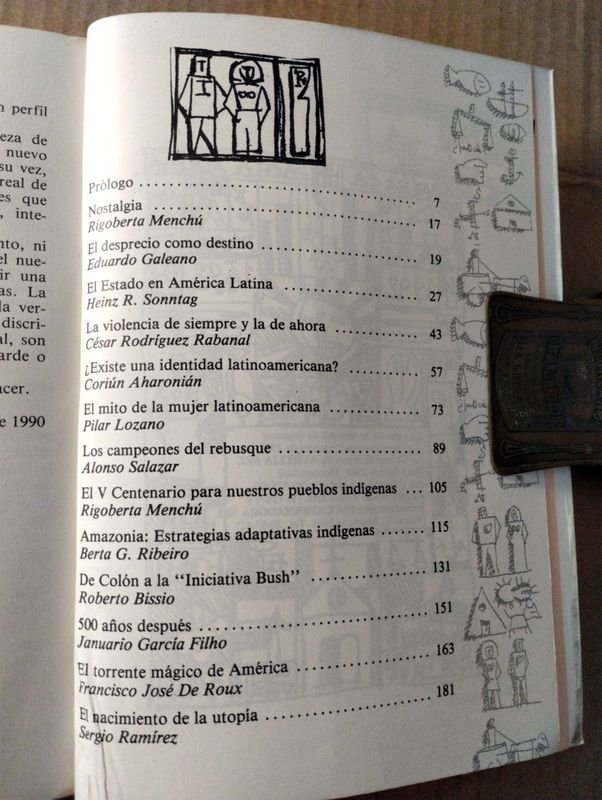 n perfil
eza de
nuevo
su vez,
real de
es que
, inte-
nto, ni
el nue-
ir una
as. La
la ver-
discri-
al, son
arde o
acer.
e 1990
Prólogo ........................................ 7
Nostalgia ........................................ 17
Rigoberta Menchú
El desprecio como destino ........................ 19
Eduardo Galeano
El Estado en América Latina ...................... 27
Heinz R. Sonntag
La violencia de siempre y la de ahora ............ 43
César Rodríguez Rabanal
¿Existe una identidad latinoamericana? ........... 57
Coriún Aharonián
El mito de la mujer latinoamericana .............. 73
Pilar Lozano
Los campeones del rebusque ....................... 89
Alonso Salazar
El V Centenario para nuestros pueblos indígenas ... 105
Rigoberta Menchú
Amazonia: Estrategias adaptativas indígenas ....... 115
Berta G. Ribeiro
De Colón a la "Iniciativa Bush" .................. 131
Roberto Bissio
500 años después ................................. 151
Januario García Filho
El torrente mágico de América .................... 163
Francisco José De Roux
El nacimiento de la utopía ....................... 181
Sergio Ramírez